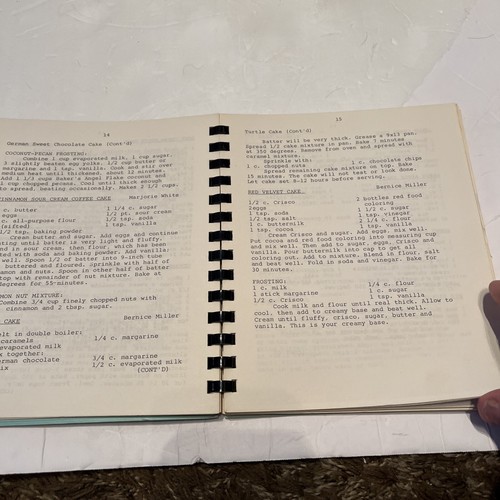 14
German Sweet Chocolate Cake (Cont'd)
COCONUT-PECAN FROSTING:
Combine 1 cup evaporated milk, 1 cup sugar,
3 slightly beaten egg yolks, 1/2 cup butter or
margarine and 1 tsp. vanilla. Cook and stir over
medium heat until thickened, about 12 minutes.
Add 1 1/3 cups Baker's Angel Flake coconut and
1 cup chopped pecans. Cool until thick enough
to spread, beating occasionally. Makes 2 1/2 cups.
CINNAMON SOUR CREAM COFFEE CAKE Marjorie White
c. butter 1 1/4 c. sugar
eggs 1/2 pt. sour cream
c. all-purpose flour 1/2 tsp. soda
(sifted) 1 tsp. vanilla
1/2 tsp. baking powder
Cream butter and sugar. Add eggs and continue
ting until batter is very light and fluffy.
nd in sour cream, then flour, which has been
ted with soda and baking powder. Add vanilla
well. Spoon 1/2 of batter into 9-inch tube
buttered and floured. Sprinkle with half of
amon and nuts. Spoon in other half of batter
top with remainder of nut mixture. Bake at
degrees for 55-minutes.
MON NUT MIXTURE:
Combine 3/4 cup finely chopped nuts with
cinnamon and 2 tbsp. sugar.
CAKE Bernice Miller
elt in double boiler:
caramels 1/4 c. margarine
evaporated milk
x together:
erman chocolate 3/4 c. margarine
ix 1/2 c. evaporated milk
(CONT'D)
15
Turtle Cake (Cont'd)
Batter will be very thick. Grease a 9x13 pan.
Spread 1/2 cake mixture in pan. Bake 7 minutes
at 350 degrees. Remove from oven and spread with
caramel mixture.
Sprinkle with:
1 c. chopped nuts 1 c. chocolate chips
Spread remaining cake mixture on top. Bake
15 minutes. The cake will not test or look done.
Let cake set 8-12 hours before serving.
RED VELVET CAKE Bernice Miller
1/2 c. Crisco 2 bottles red food
2eggs coloring
1 tsp. soda 1 1/2 c. sugar
1/2 tsp. salt 1 tsp. vinegar
1 c. buttermilk 2 1/4 c. flour
1 tsp. cocoa 1 tsp. vanilla
Cream Crisco and sugar, add eggs, mix well.
Put cocoa and red food coloring into measuring cup
and mix well. Then add to sugar, eggs, Crisco and
vanilla. Pour buttermilk into cup to get all
coloring out. Add to mixture, blend in flour, salt
and beat well. Fold in soda and vinegar. Bake for
30 minutes.
FROSTING:
1 c. milk 1/4 c. flour
1 stick margarine 1 c. sugar
1/2 c. Crisco 1 tsp. vanilla
Cook milk and flour until real thick. Allow to
cool, then add to creamy base and beat well.
Cream until fluffy, crisco, sugar, butter and
vanilla. This is your creamy base.